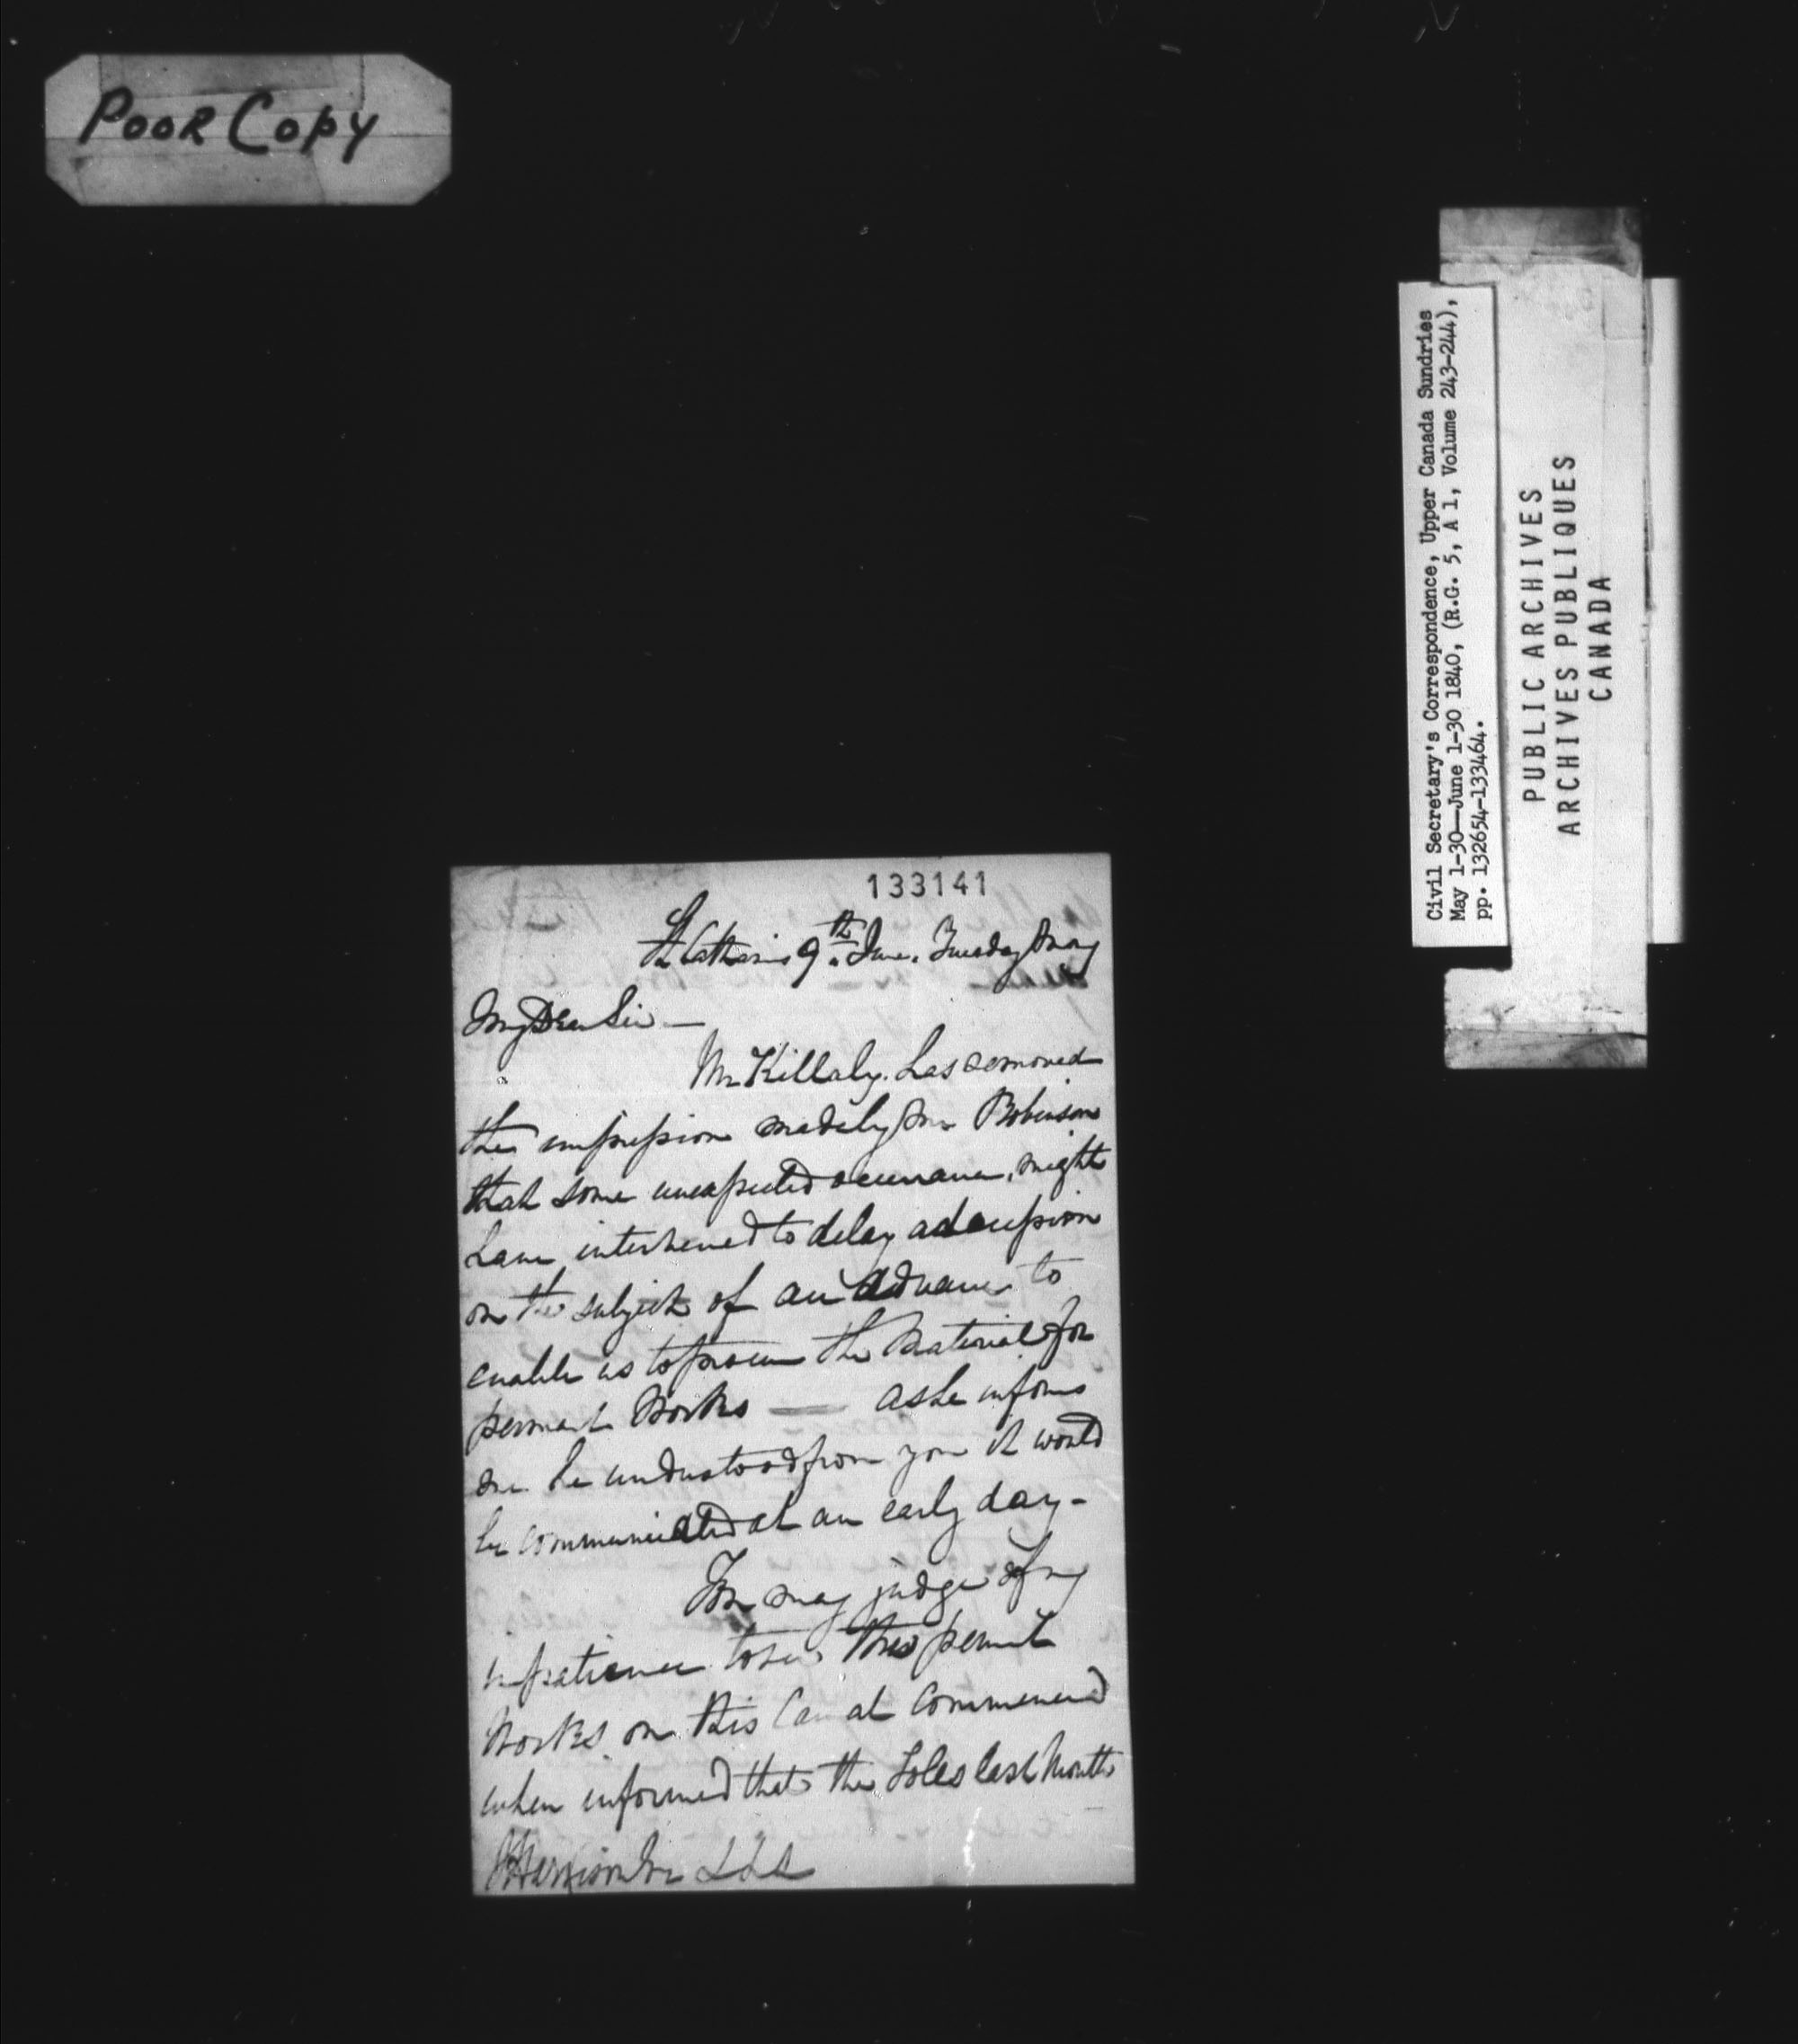 POOR COPY
Civil Secretary's Correspondence, Upper Canada Sundries
May 1-30—June 1-30 1840, (R.G. 5, A 1, Volume 243-244),
pp. 132654-133464.
PUBLIC ARCHIVES
ARCHIVES PUBLIQUES
CANADA
133141
St Catharines 9th June. Tuesday
My Dear Sir —
Mr Killaly. has removed
the impression made by Mr Robinson
that some unexpected occurance, might
have intervened to delay a decision
on the subject of an advance to
enable us to procure the Material for
permant Works — as he informs
me he understood from you it would
be communicated at an early day -
You may judge of my
impatience to see the permt
Works on this Canal commenced
when informed that the Tolls last Month
Harrison